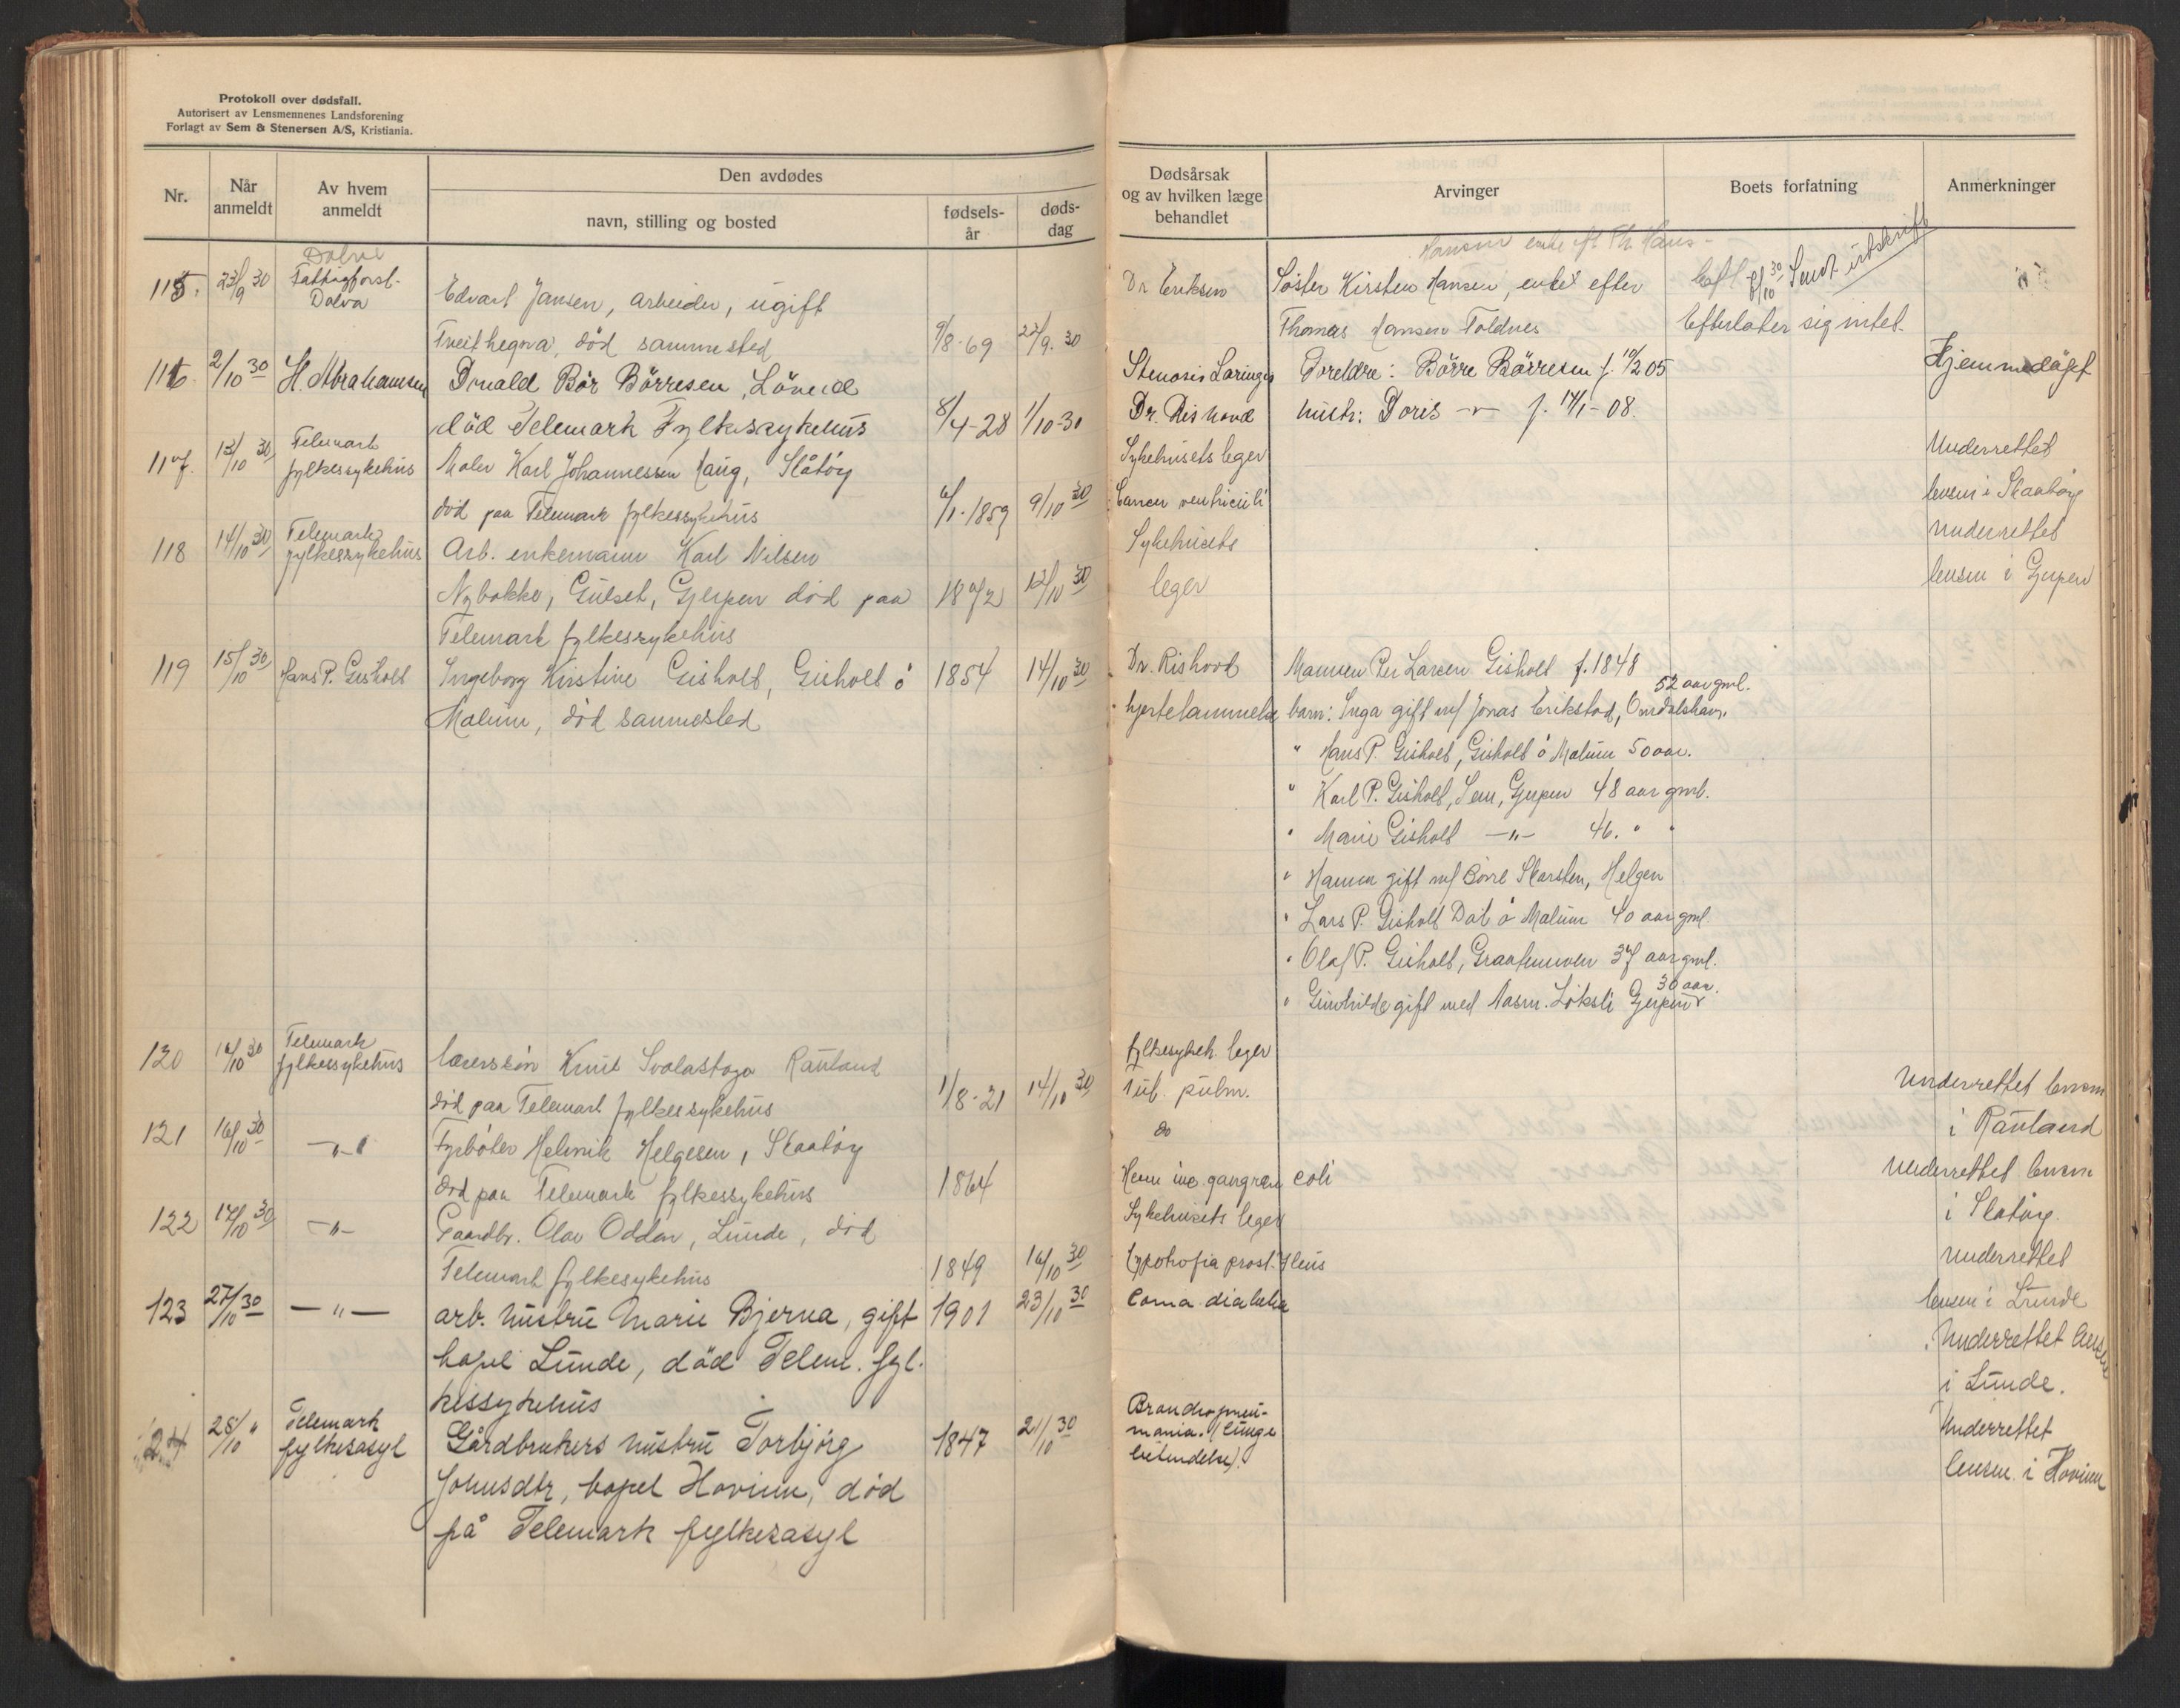 Protokoll over dødsfall.
Autorisert av Lensmennenes Landsforening
Forlagt av Sem & Stenersen A/S, Kristiania.
Nr.
Når anmeldt
Av hvem anmeldt
Den avdødes
navn, stilling og bosted
fødsels-år
døds-dag
Dødsårsak og av hvilken læge behandlet
Arvinger
Boets forfatning
Anmerkninger
115. 23/9 30 Fattigforst. Dolva
Edvart Jansen, arbeider, ugift
død sammested 9/8-69 22/9.30
Dr Eriksen
Søster Kirsten Hansen, enke efter
Thomas Hansen Toldnes
8/10 30 Sendt utskrift
Efterlater sig intet.
116. 2/10 30 H. Abrahamsen
Donald Bör Börresen, Löveid
död Telemark Fylkessykehus 8/4-28 1/10-30
Stenosis Laringis
Dr. Rishovd
Foreldre: Börre Börresen f. 10/2 05
hustr: Doris -"- f. 14/1-08.
Hjemmedöpt
117. 13/10 30 Telemark fylkessykehus
Maler Karl Johannessen Haug, Slåtöy
död paa Telemark fylkessykehus 6/1-1859 9/10 30
Sykehusets leger
Cancer ventriculi
Underrettet
lensm i Skaatöy
118 14/10 30 Telemark fylkessykehus
Arb. enkemann Karl Nilsen
Nybakke, Gulset, Gjerpen död paa 1872 12/10 30
Telemark fylkessykehus
Sykehusets
leger
Underrettet
lensm i Gjerpen
119 15/10 30 Hans P. Gisholt
Ingeborg Kirstine Gisholt, Gisholt ö 1854 14/10 30
Melum, död sammested
Dr. Rishovd
hjertelammelse
Mannen Per Larsen Gisholt f. 1848
52 aar gml.
barn: Inga gift m/ Jonas Erikstad, Omdalshavn.
" Hans P. Gisholt, Gisholt ö Melum 50 aar.
" Karl P. Gisholt, Sem, Gjerpen 48 aar gml.
" Marie Gisholt -"- 46. " "
" Hanna gift m/ Börre Skarsten, Helgen
" Lars P. Gisholt Dal ö Melum 40 aar gml.
" Olaf P. Gisholt, Graatenmoen 37 aar gml.
30 aar.
" Gunhilde gift med Aasm. Löksli Gjerpen
120 16/10 30 Telemark fylkessykehus
Lærersön Knut Svalastoga Rauland
död paa Telemark fylkessykehus 1/8-21 14/10 30
fylkesykeh. leger
Tub. pulm.
Underrettet lensm
i Rauland
121 16/10 30 -"-
Fyrböter Helmik Helgesen, Skaatöy
död paa Telemark fylkessykehus 1864
do
Hern inc. gangræn coli
Underrettet lensm
i Skatöy.
122 17/10 30 -"-
Gaardbr. Olav Oddon, Lunde, död
Telemark fylkesykehus 1849 16/10 30
Sykehusets leger
Hypotrofia prost. Ileus
Underrettet
lensm i Lunde
123 27/10 30 -"-
arb. hustru Marie Bjerva, gift 1901 23/10 30
bopel Lunde, död Telem. fyl-
kessykehus
Coma diabetic
Underrettet lensm
i Lunde.
124 28/10 " Telemark fylkesasyl
Gårdbrukers hustru Torbjörg 1847 21/10 30
Johnsdtr, bopel Hovinn, död
på Telemark fylkesasyl
Broncopneu-
monia. (lunge
betendelse).
Underrettet
lensm. i Hovinn